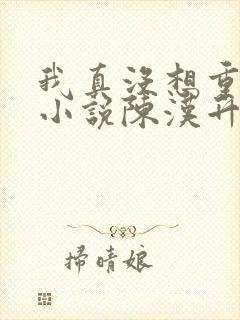 我真没想重
小說陳漢升
掃晴娘